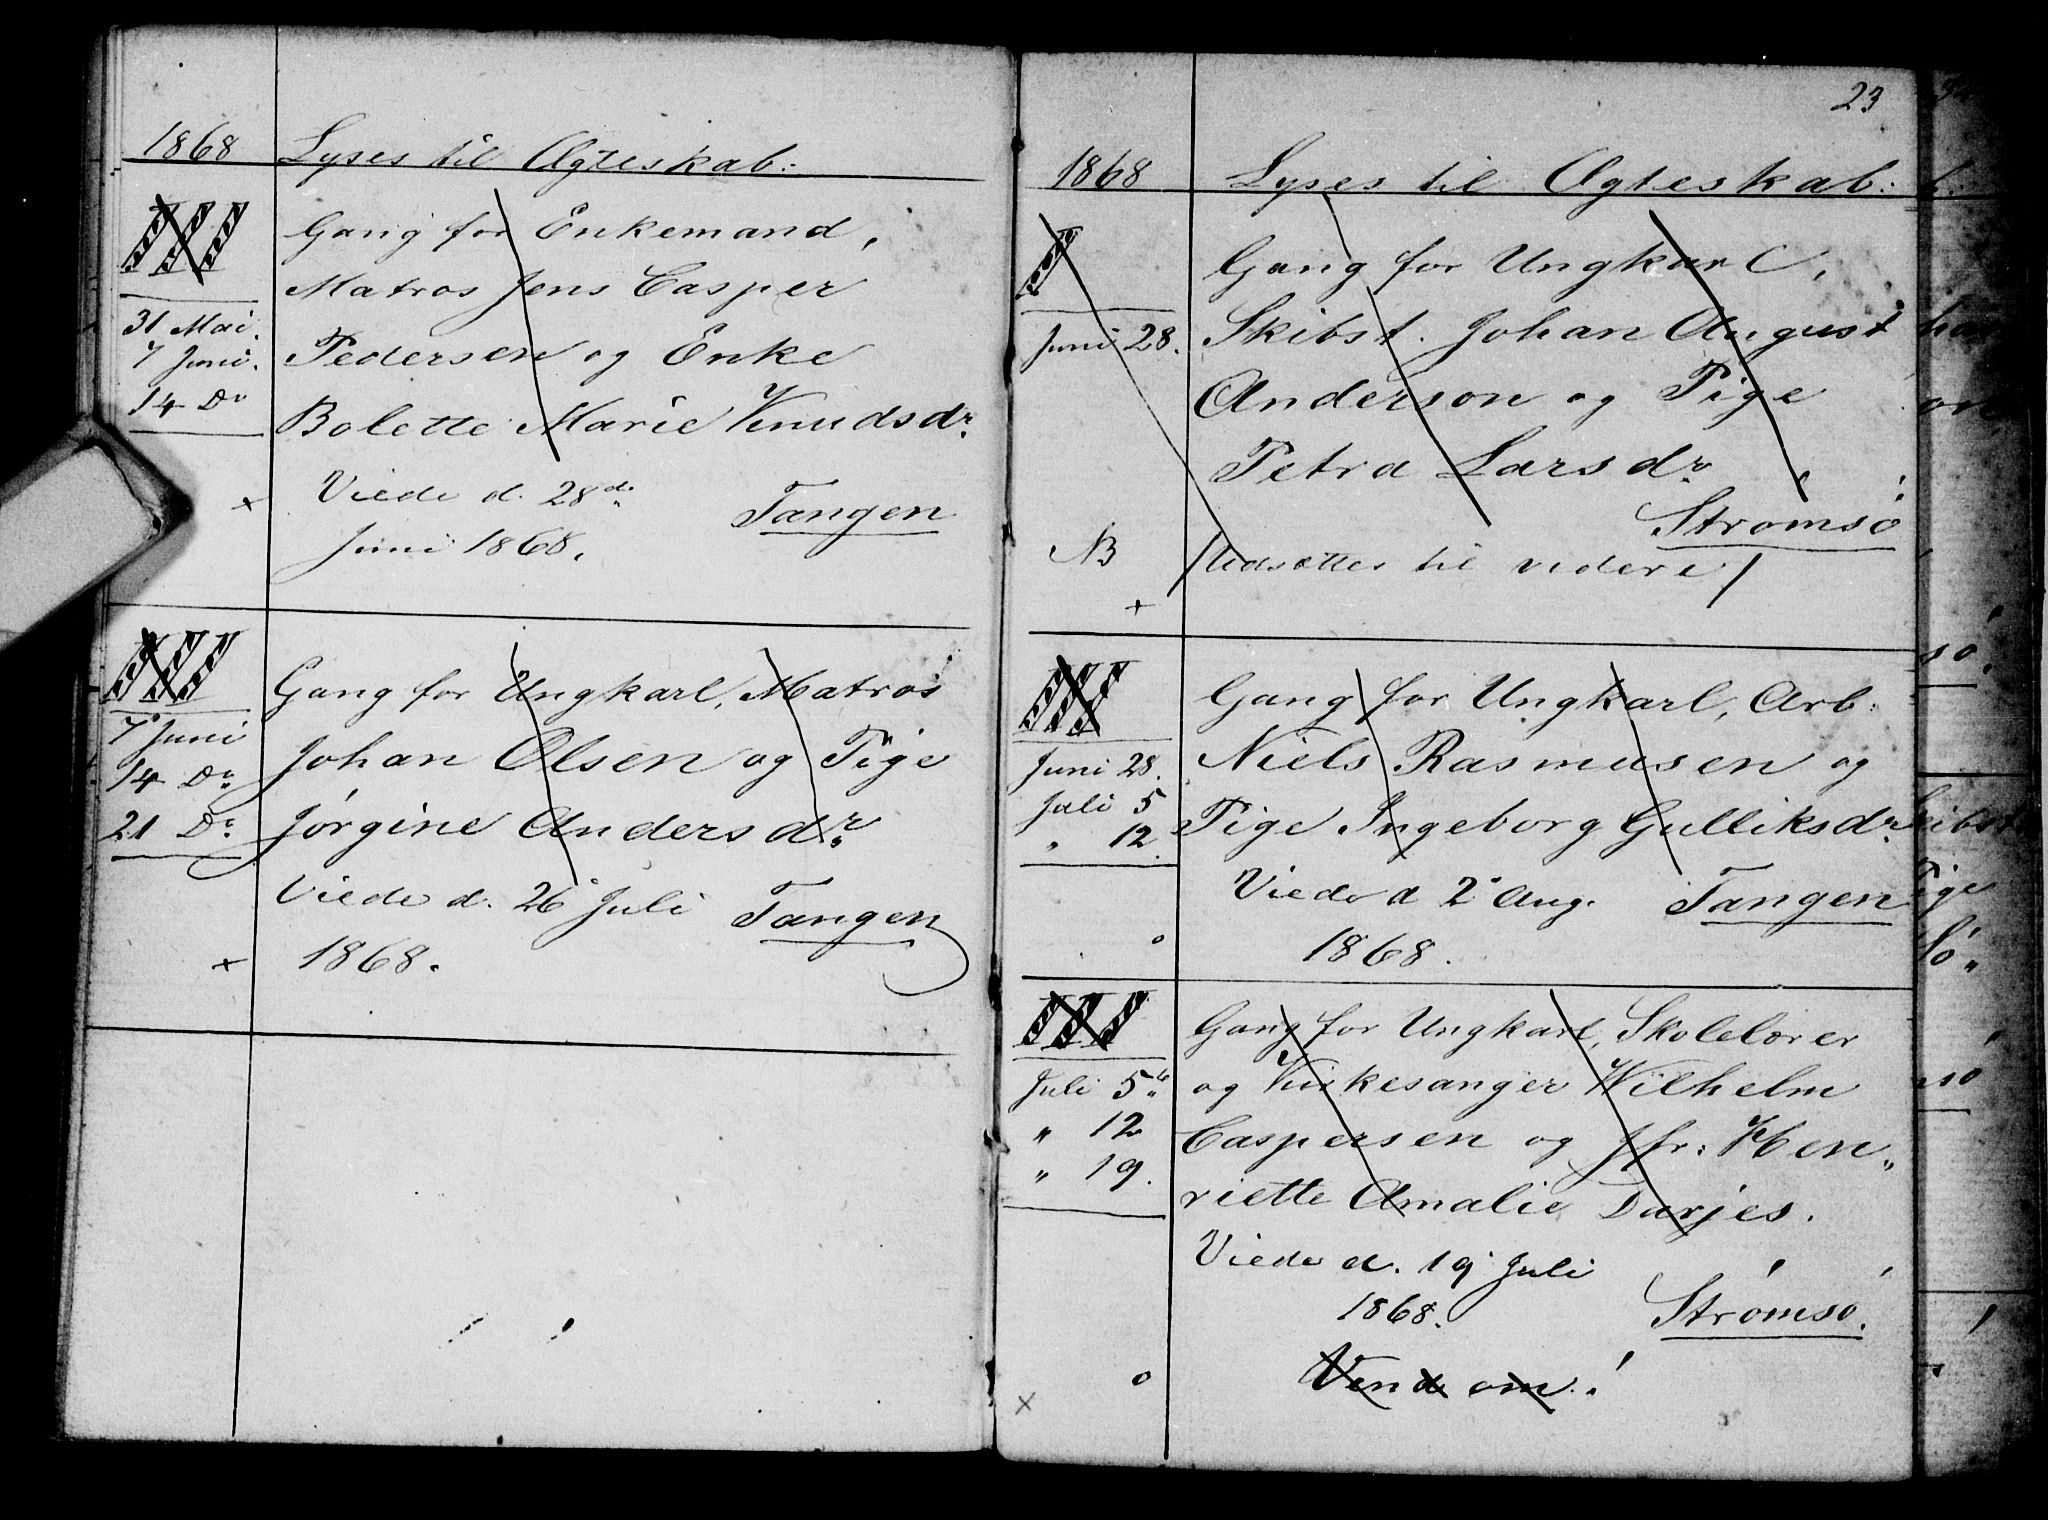 1868 Lyses til Ægteskab:
III Gang for Enkemand,
Matros Jens Casper
31 Mai.
7 Juni.
14 Do
Pedersen og Enke
Bolette Marie Knudsdr.
Viede d. 28de
Juni 1868.
Tangen
+
III
7 Juni
14 Do
21 Do
Gang for Ungkarl, Matros
Johan Olsen og Pige
Jørgine Andersdr.
Viede d. 26 Juli
1868.
Tangen
+
23
1868 Lyses til Ægteskab:
I
Juni 28.
Gang for Ungkarl,
Skibst. Johan August
Anderson og Pige
Petra Larsdr.
Strømsö
NB /Udsættes til videre/
+
III
Juni 28.
Juli 5
" 12.
Gang for Ungkarl, Arb:
Niels Rasmusen og
Pige Ingeborg Gulliksdr.
Viede d 2 Aug.
1868.
Tangen
o
III
Juli 5
" 12
" 19.
Gang for Ungkarl, Skolelærer
og Kirkesanger Wilhelm
Caspersen og Jfr: Hen„
riette Amalie Darjes.
Viede d. 19 Juli
1868.
Strømsö.
Vend om!
o
x